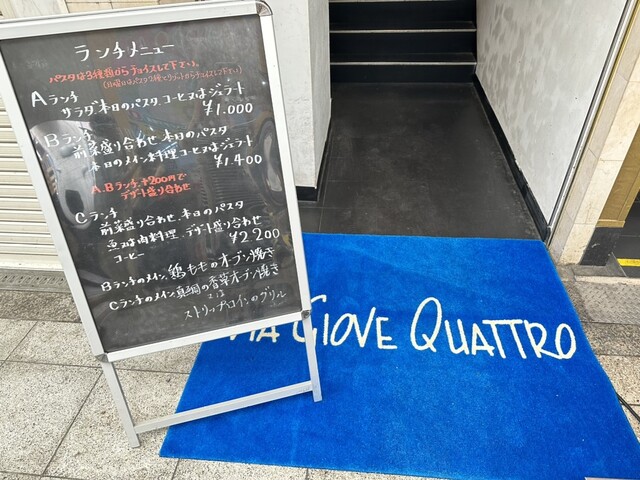 ランチメニュー
パスタは3種類からチョイスして下さい。
(日曜日はパスタ2種とリゾットからチョイスして下さい)
Aランチ
サラダ、本日のパスタ、コーヒー又はジェラート
¥1.000
Bランチ
前菜盛り合わせ、本日のパスタ
本日のメイン料理、コーヒー又はジェラート
¥1,400
A.Bランチ、+200円で
デザート盛り合わせ
Cランチ
前菜盛り合わせ、本日のパスタ
魚又は肉料理、デザート盛り合わせ
コーヒー ¥2.200
Bランチのメイン、鶏もものオーブン焼き
Cランチのメイン、真鯛の香草オーブン焼き
又は
ストリップロインのグリル
VIA GIOVE QUATTRO